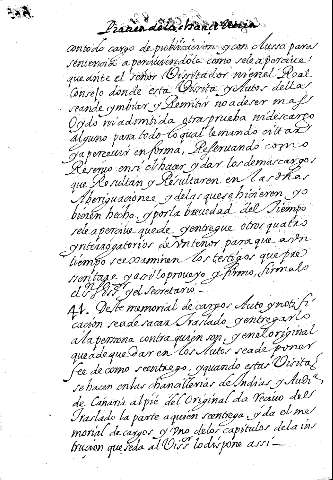 con todo cargo de publicacion y conclusion para
sentencia aperciviendola como se le apercive
que ante el señor Visitador ni en el Real
Consejo donde esta Visita y Autos della s
se ande ymbiar y Remitir no a de ser mas
Oydo ni admitida otra prueba ni descargo
alguno para todo lo qual le mando citar
y apercevir en forma, Reservando como
Reservo en si el hacer y dar los demas cargos
que Resultan y Resultaren en las dhas
Aberiguaciones y de las que se hicieren, yo
bieren hecho, y por la brevedad del tiempo
se le apercive que de y entregue otros quales
ynterrogatorios de un tenor para que a un
tiempo se examinen los testigos que pre
sentare y assi lo proveyo y firmo, firmalo
el y el secretario.
44. Deste memorial de cargos Auto y notifi
cacion se a de sacar Traslado, y entregarlo
a la persona contra quien son, y en el original
que a de quedar en los Autos se a de poner
fee de como se entrego, y quando estas Visitas
se hacen en las chancillerias de Indias y Audi.ª
de Canaria al pie del Original da recivo del
Traslado la parte a quien se entrega, y da el me
morial de cargos, y uno de los capitulos de la ins
truccion que se da al Visor lo dispone assi